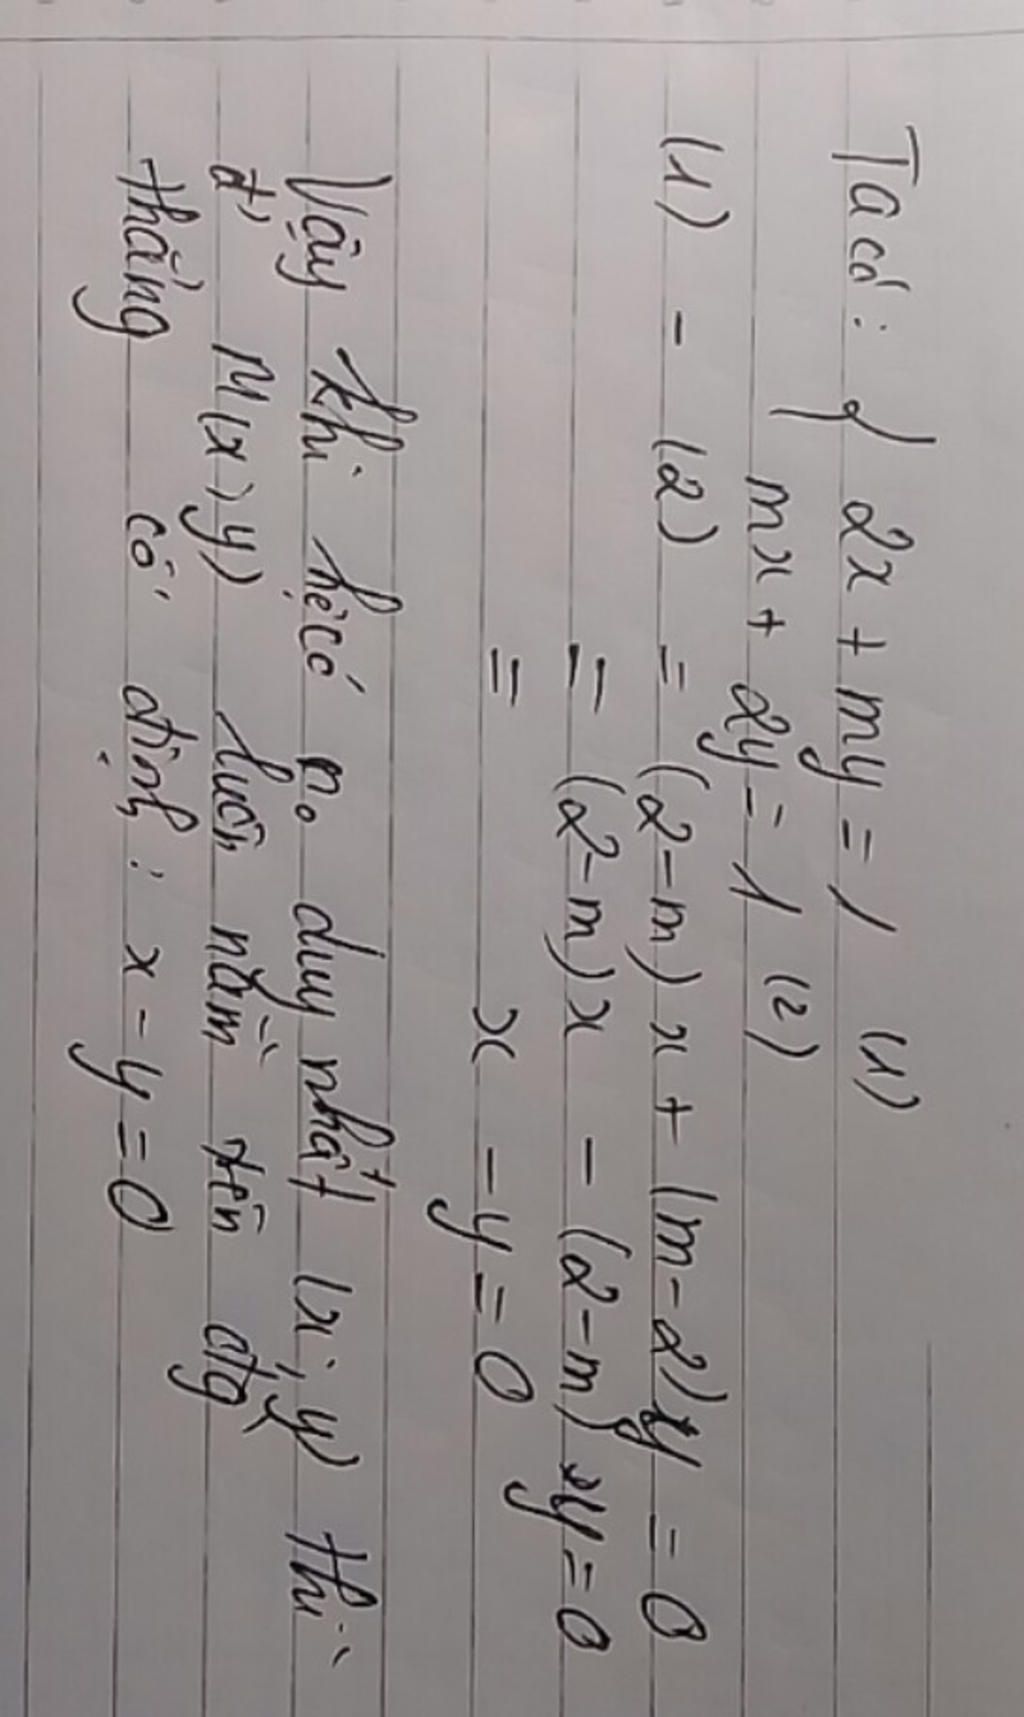 Ta có: { 2x + my = 1 (1)
mx + 2y = 1 (2)
(1) - (2) = (2-m)x + (m-2)y = 0
= (2-m)x - (2-m)y = 0
= x - y = 0
Vậy khi hệ có no duy nhất (x;y) thì
đ' M(x;y) luôn nằm trên đtg
thẳng cố định: x - y = 0